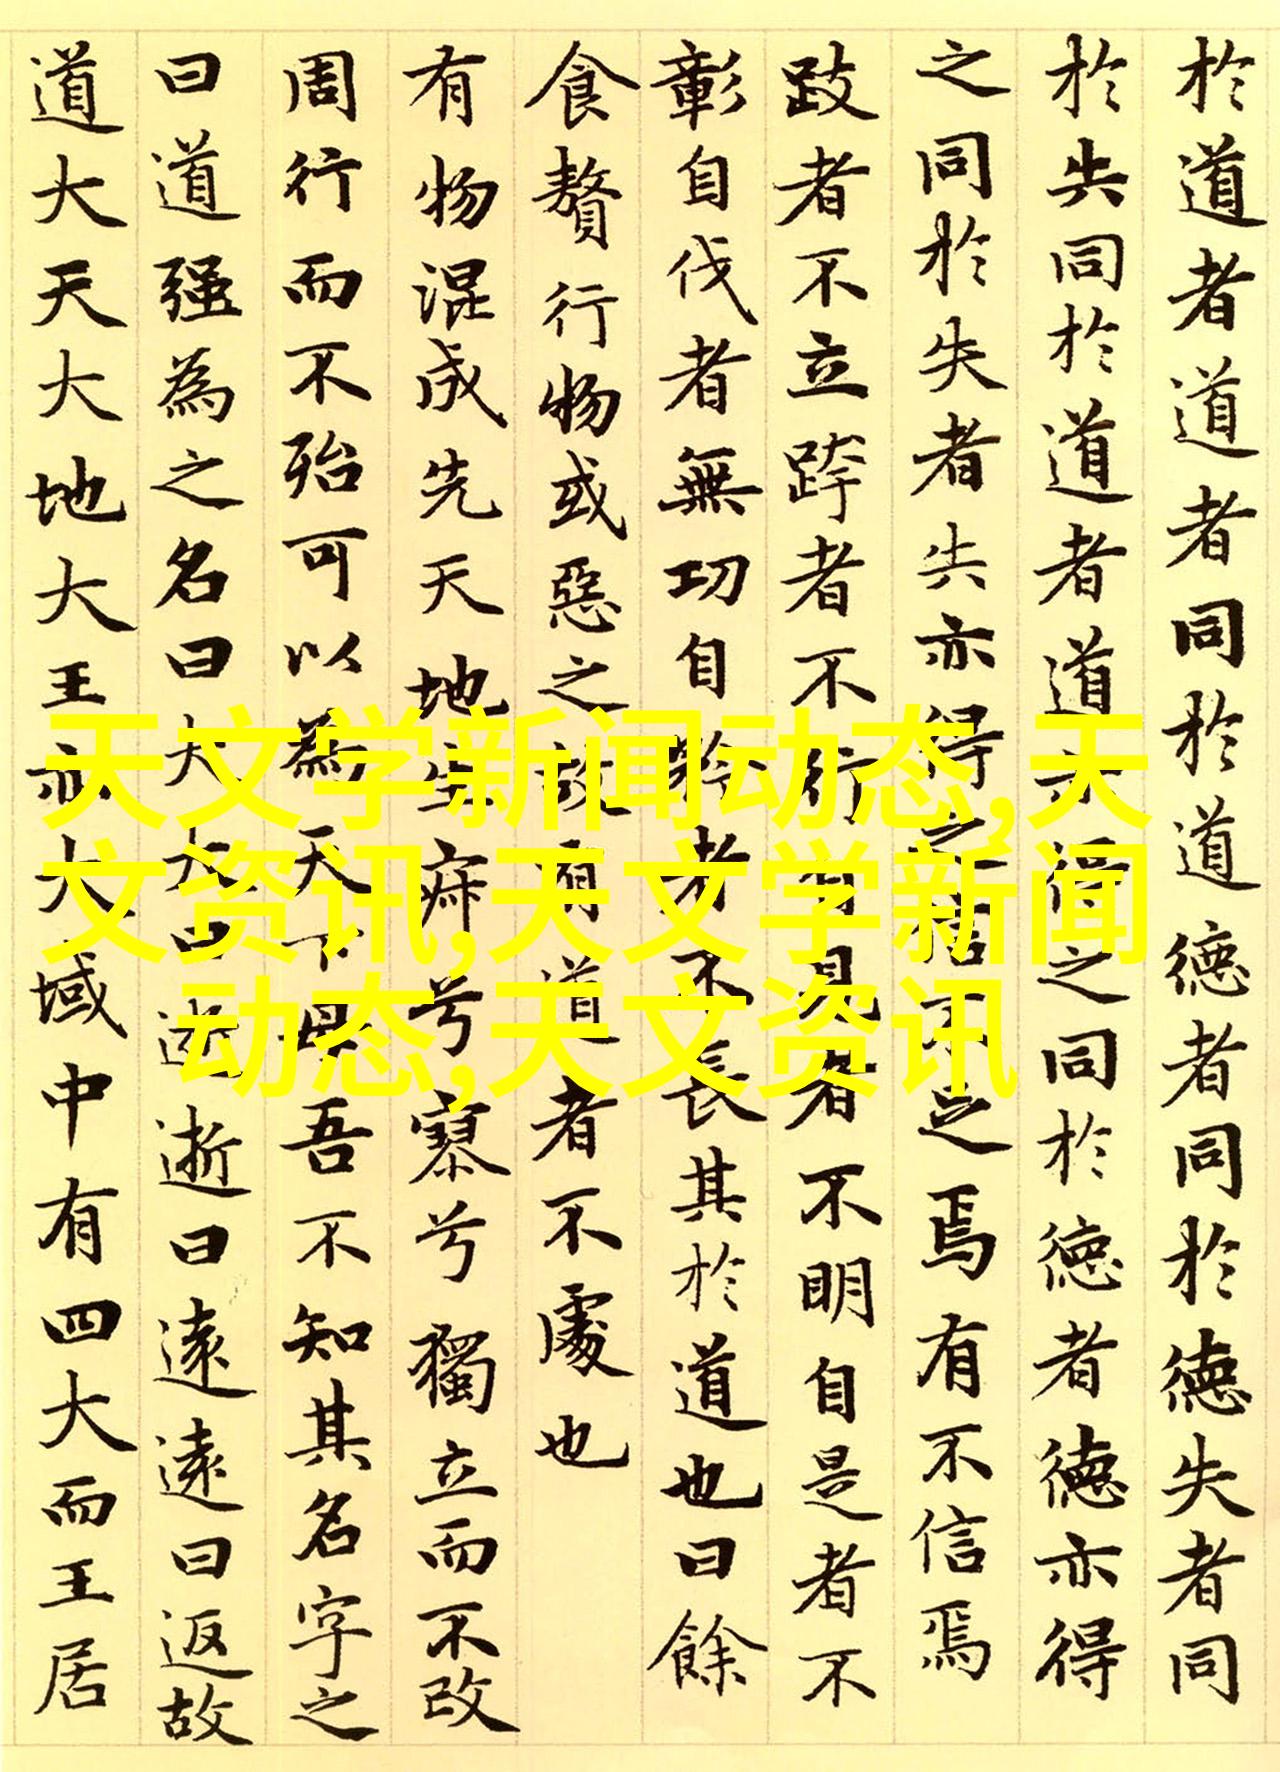 於道者道者同於道德者同於德失者同
於失同於道者道亦得之同於德者德亦得
之同於失者失亦得之信不足焉有不信焉
跂者不立跨者不行自見者不明自是者不
彰自伐者無功自矜者不長其於道也曰餘
食贅行物或惡之故有道者不處也
有物混成先天地生寂兮寥兮獨立而不改
周行而不殆可以為天下母吾不知其名字之
曰道强為之名曰大大曰逝逝曰遠遠曰返故
道大天大地大王亦大域中有四大而王居
天文学新闻动态,天
文资讯,天文学新闻
动态,天文资讯